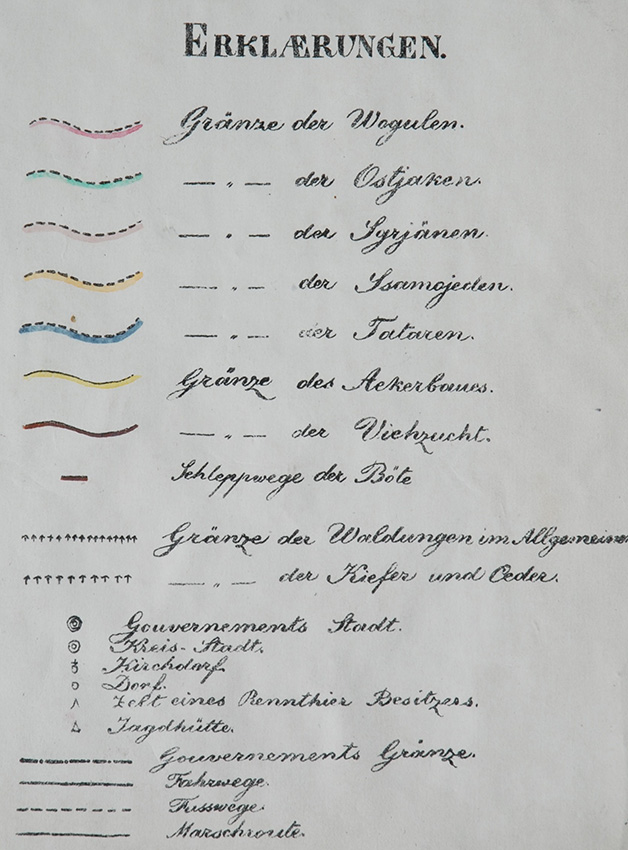 ERKLÆRUNGEN.
Gränze der Wogulen.
— „ — der Ostjaken.
— „ — der Syrjänen.
— „ — der Ssamojeden.
— „ — der Tataren.
Gränze des Ackerbaues.
— „ — der Viehzucht.
Schleppwege der Böte
Gränze der Waldungen im Allgemeinen
— „ — der Kiefer und Ceder.
Gouvernements Stadt.
Kreis-Stadt.
Kirchdorf
Dorf.
Zelt eines Rennthier Besitzers.
Jagdhütte.
Gouvernements Gränze.
Fahrwege.
Fusswege.
Marschroute.